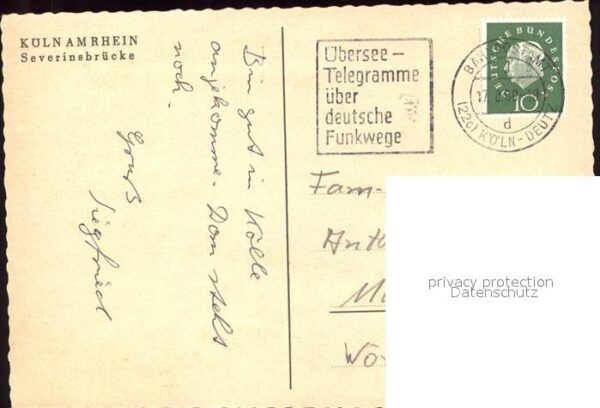 KÖLN AM RHEIN
Severinsbrücke
Bin gut in Kölle
angekomme. Dom steht
noch.
Gruß
Siegfried
Übersee-
Telegramme
über
deutsche
Funkwege
DEUTSCHE BUNDESPOST
10
d
(22c) KÖLN-DEUTZ
Fam.
privacy protection
Datenschutz